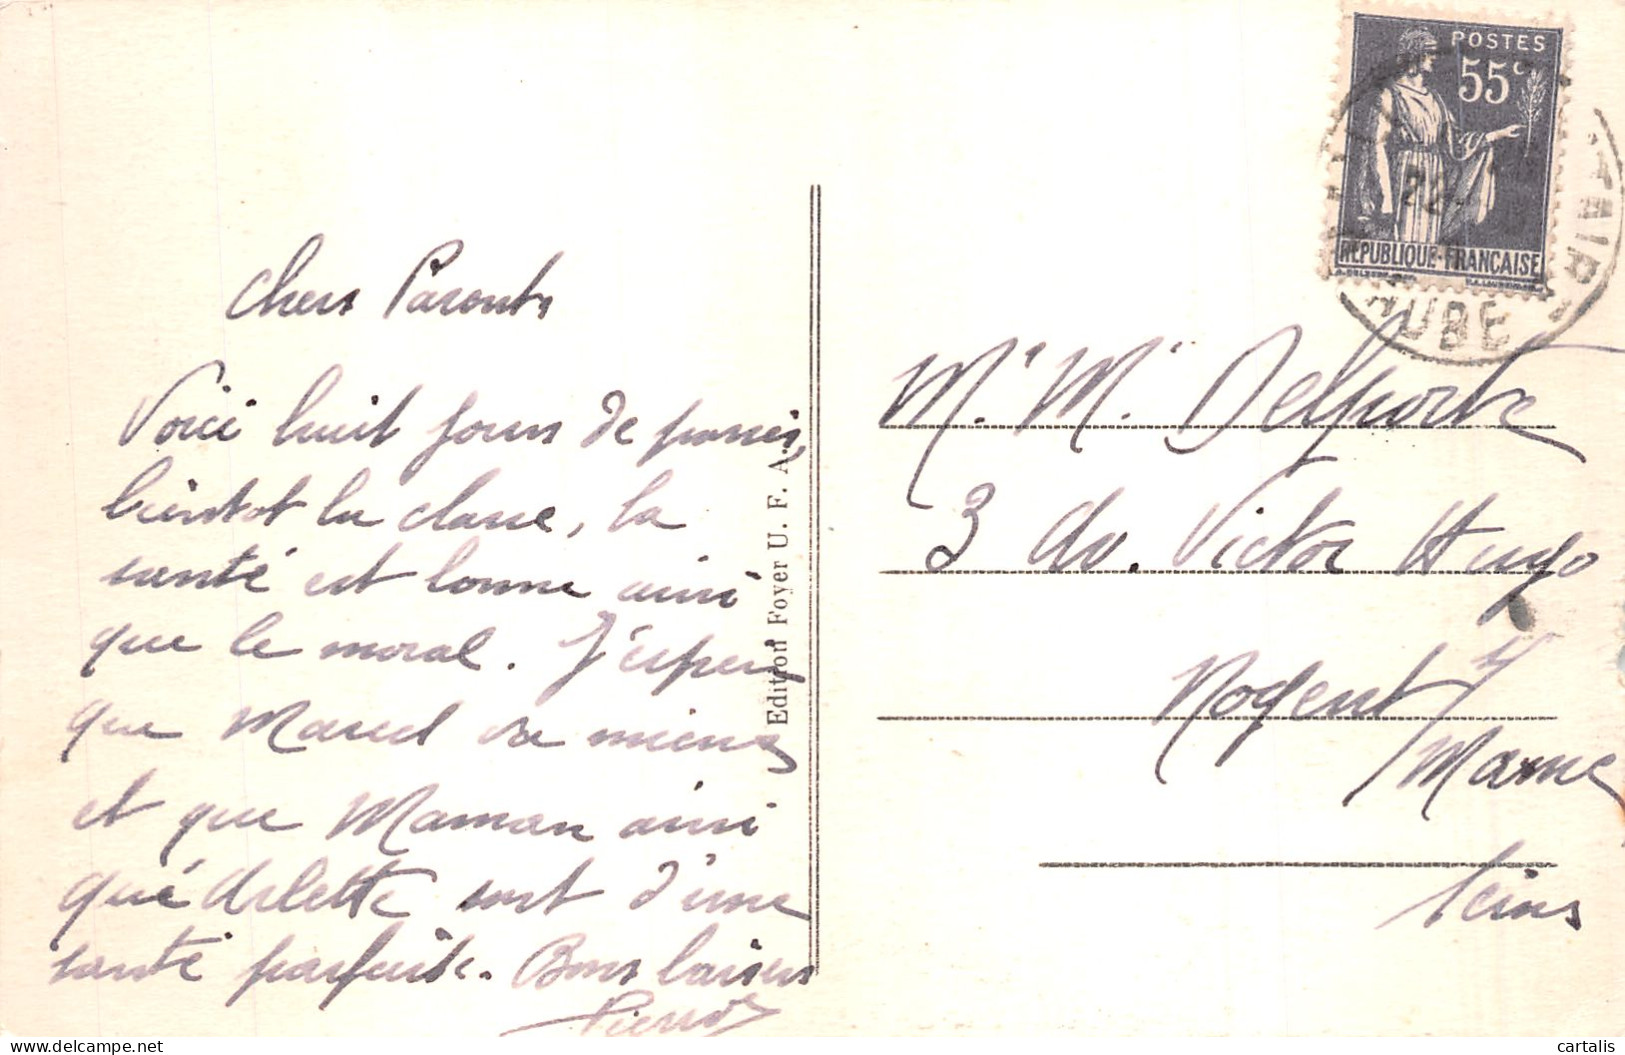 chers Parents
Voici huit jours de passés,
bientot la classe, la
santé est bonne ainsi
que le moral. J'espère
que Marcel va mieux
et que Maman ainsi
que Arlette sont d'une
santé parfaite. Bons baisers
Pierrot
Edition Foyer U. F. A.
POSTES
55c
REPUBLIQUE-FRANÇAISE
22
AUBE
Mr. Mr. Delporte
3 Av. Victor Hugo
Nogent s/
Marne
Seine
cartalis
delcampe.net